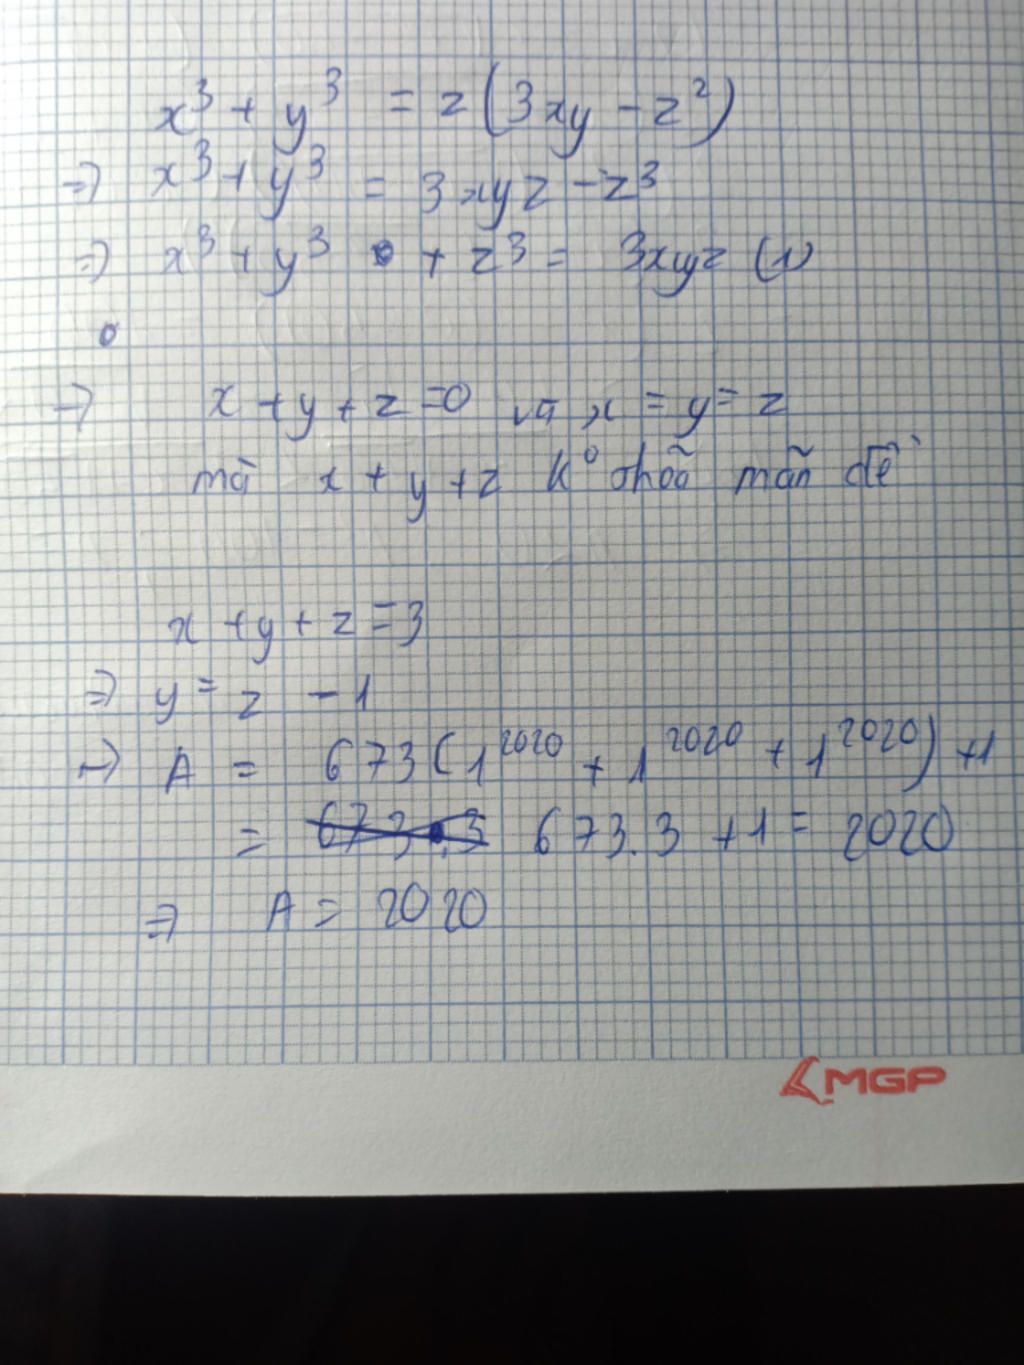 x³ + y³ = z(3xy - z²)
=> x³ + y³ = 3xyz - z³
=> x³ + y³ + z³ = 3xyz (1)
=> x + y + z = 0 và x = y = z
mà x + y + z k° thoã mãn đề
x + y + z = 3
=> y = z - 1
=> A = 673(1²⁰²⁰ + 1²⁰²⁰ + 1²⁰²⁰) + 1
= 673.3 + 1 = 2020
=> A = 2020
MGP